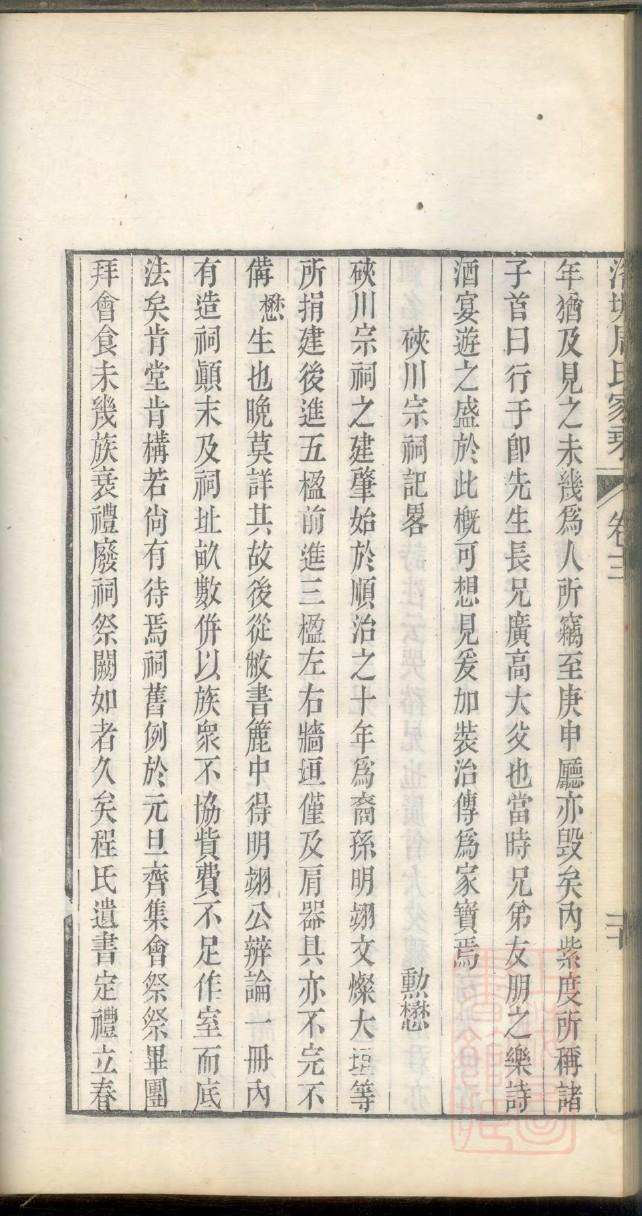 周氏家乘 卷三
年猶及見之未幾為人所竊至庚申廳亦毀矣內紫度所稱諸
子首曰行于卽先生長兄廣高大父也當時兄弟友朋之樂詩
酒宴遊之盛於此概可想見爰加裝治傳為家寶焉
硤川宗祠記畧 勲懋
硤川宗祠之建肇始於順治之十年為裔孫明翊文燦大垣等
所捐建後進五楹前進三楹左右牆垣僅及肩器具亦不完不
備懋生也晚莫詳其故後從敝書簏中得明翊公辨論一冊內
有造祠顚末及祠址畝數併以族衆不協貲費不足作室而底
法矣肯堂肯構若尙有待焉祠舊例於元旦齊集會祭祭畢團
拜會食未幾族衰禮廢祠祭闕如者久矣程氏遺書定禮立春